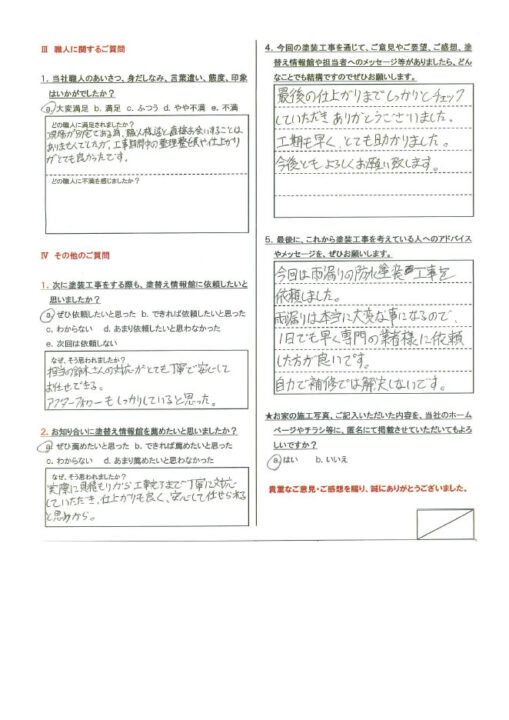 Ⅲ 職人に関するご質問
1. 当社職人のあいさつ、身だしなみ、言葉遣い、態度、印象
はいかがでしたか？
a. 大変満足 b. 満足 c. ふつう d. やや不満 e. 不満
どの職人に満足されましたか？
現場が別宅である為、職人様達と直接お会いすることは
ありませんでしたが、工事期間中の整理整頓や仕上がり
がとても良かったです。
どの職人に不満を感じましたか？
Ⅳ その他のご質問
1. 次に塗装工事をする際も、塗替え情報館に依頼したいと
思いましたか？
a. ぜひ依頼したいと思った b. できれば依頼したいと思った
c. わからない d. あまり依頼したいと思わなかった
e. 次回は依頼しない
なぜ、そう思われましたか？
担当の鈴木さんの対応がとても丁寧で安心して
お任せできる。
アフターフォローもしっかりしていると思った。
2. お知り合いに塗替え情報館を薦めたいと思いましたか？
a. ぜひ薦めたいと思った b. できれば薦めたいと思った
c. わからない d. あまり薦めたいと思わなかった
なぜ、そう思われましたか？
実際に見積もりから工事完了まで丁寧に対応
していただき、仕上がりも良く、安心して任せられる
と思うから。
4. 今回の塗装工事を通じて、ご意見やご要望、ご感想、塗
替え情報館や担当者へのメッセージ等がありましたら、どん
なことでも結構ですのでぜひお願いします。
最後の仕上がりまでしっかりとチェック
していただきありがとうございました。
工期も早く、とても助かりました。
今後ともよろしくお願い致します。
5. 最後に、これから塗装工事を考えている人へのアドバイス
やメッセージを、ぜひお願いします。
今回は雨漏りの防水塗装工事を
依頼しました。
雨漏りは本当に大変な事になるので、
1日でも早く専門の業者様に依頼
した方が良いです。
自力で補修では解決しないです。
★お家の施工写真、ご記入いただいた内容を、当社のホーム
ページやチラシ等に、匿名にて掲載させていただいてもよろ
しいですか？
a. はい b. いいえ
貴重なご意見・ご感想を賜り、誠にありがとうございました。